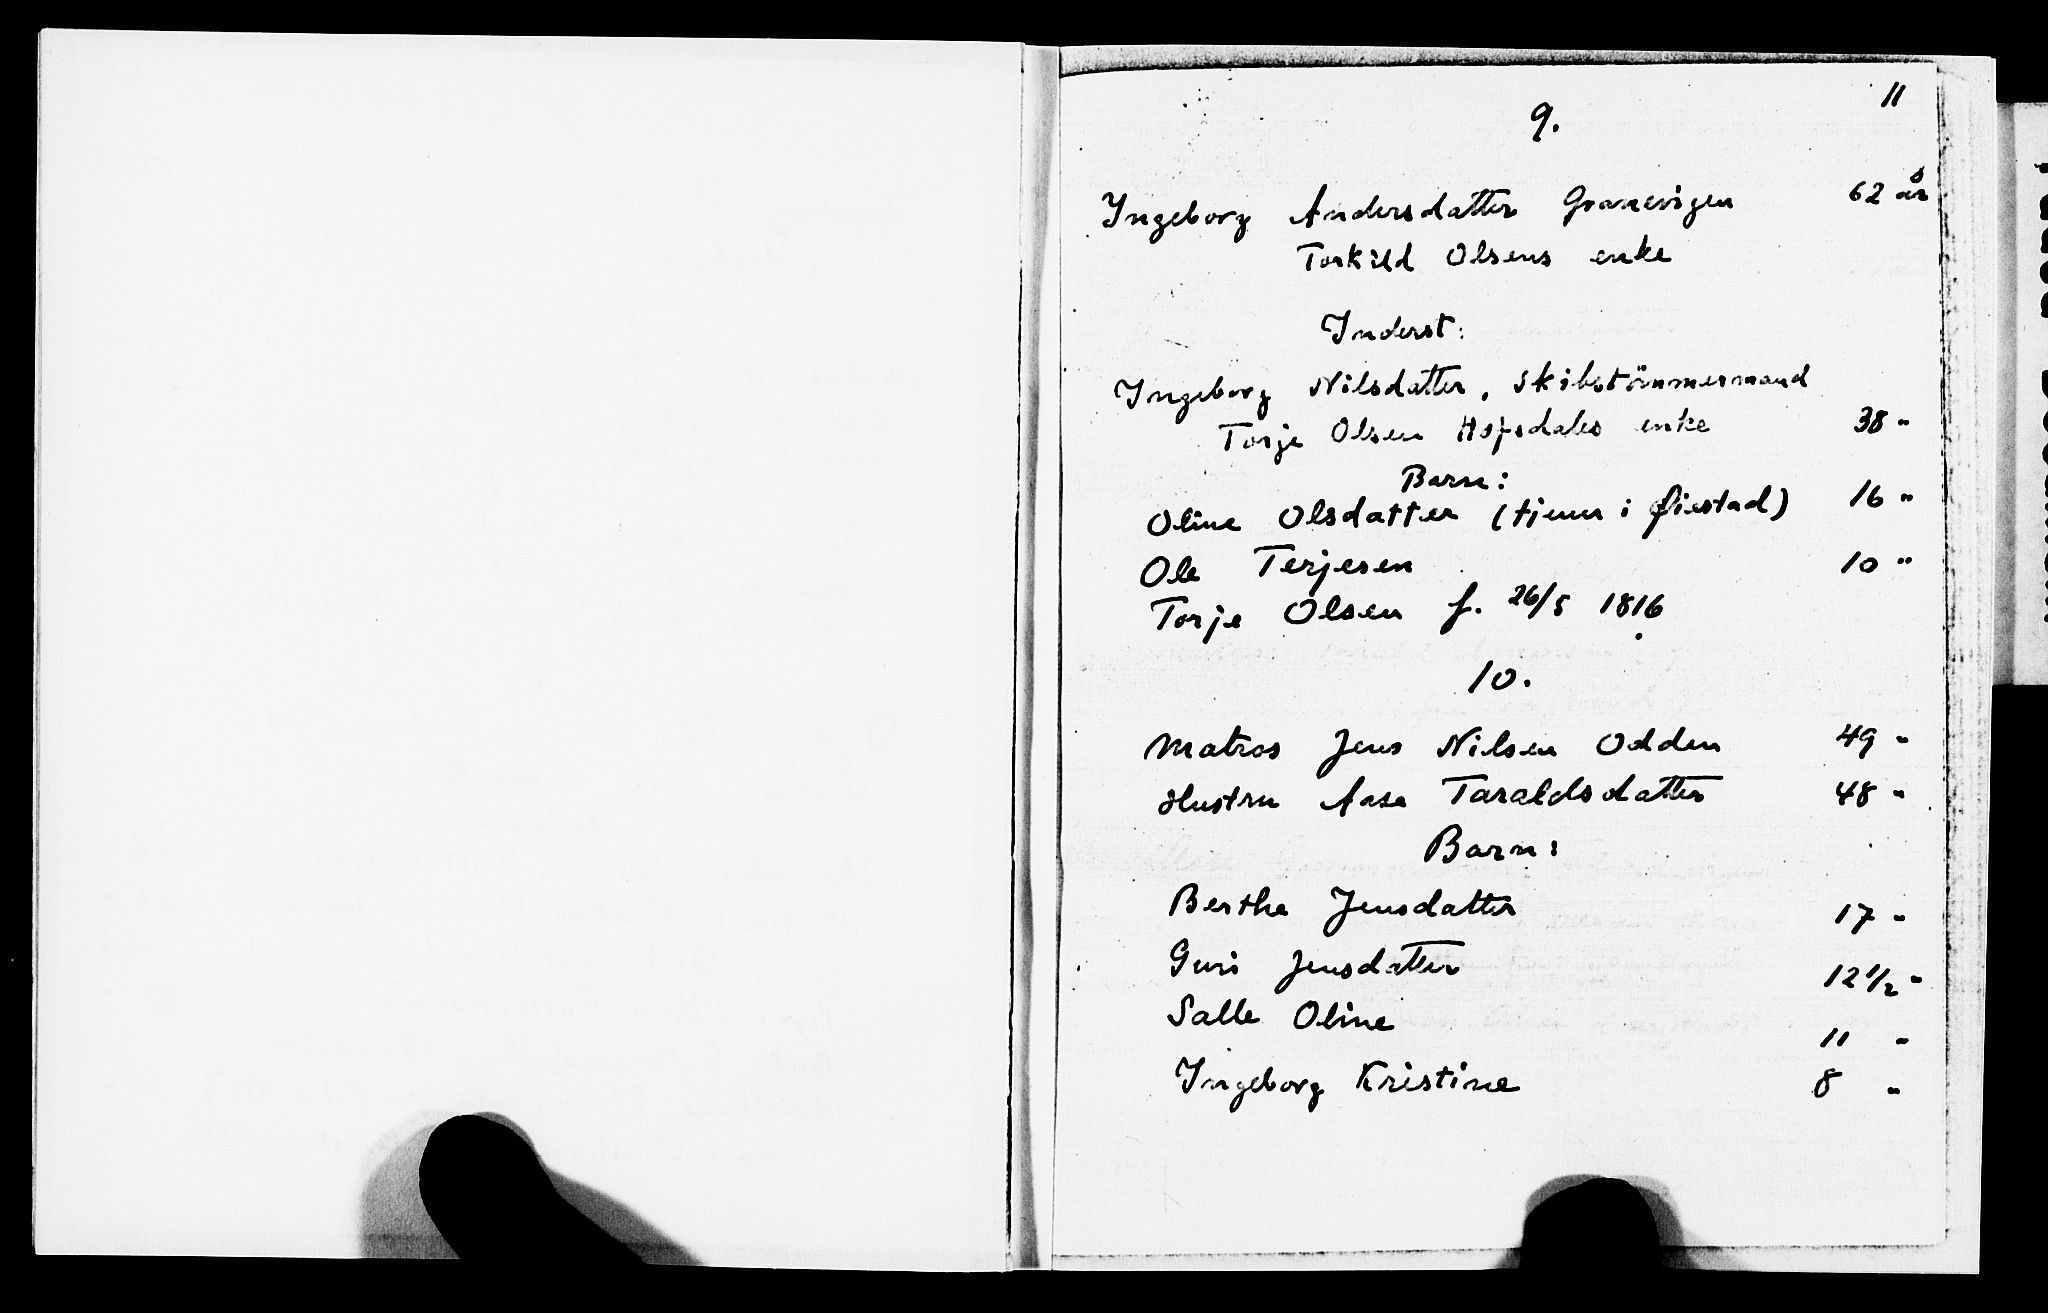 11
9.
Ingeborg Andersdatter Granevigen 62 år
Torkild Olsens enke
Inderst:
Ingeborg Nilsdatter, Skibstömmermand
Torje Olsen Hofsdales enke 38 "
Barn:
Oline Olsdatter (tjener i Øiestad) 16 "
Ole Terjesen 10 "
Torje Olsen f. 26/5 1816
10.
Matros Jens Nilsen Odden 49 "
Hustru Aase Taraldsdatter 48 "
Barn:
Berthe Jensdatter 17 "
Guri Jensdatter 12 1/2 "
Salle Oline 11 "
Ingeborg Kristine 8 "